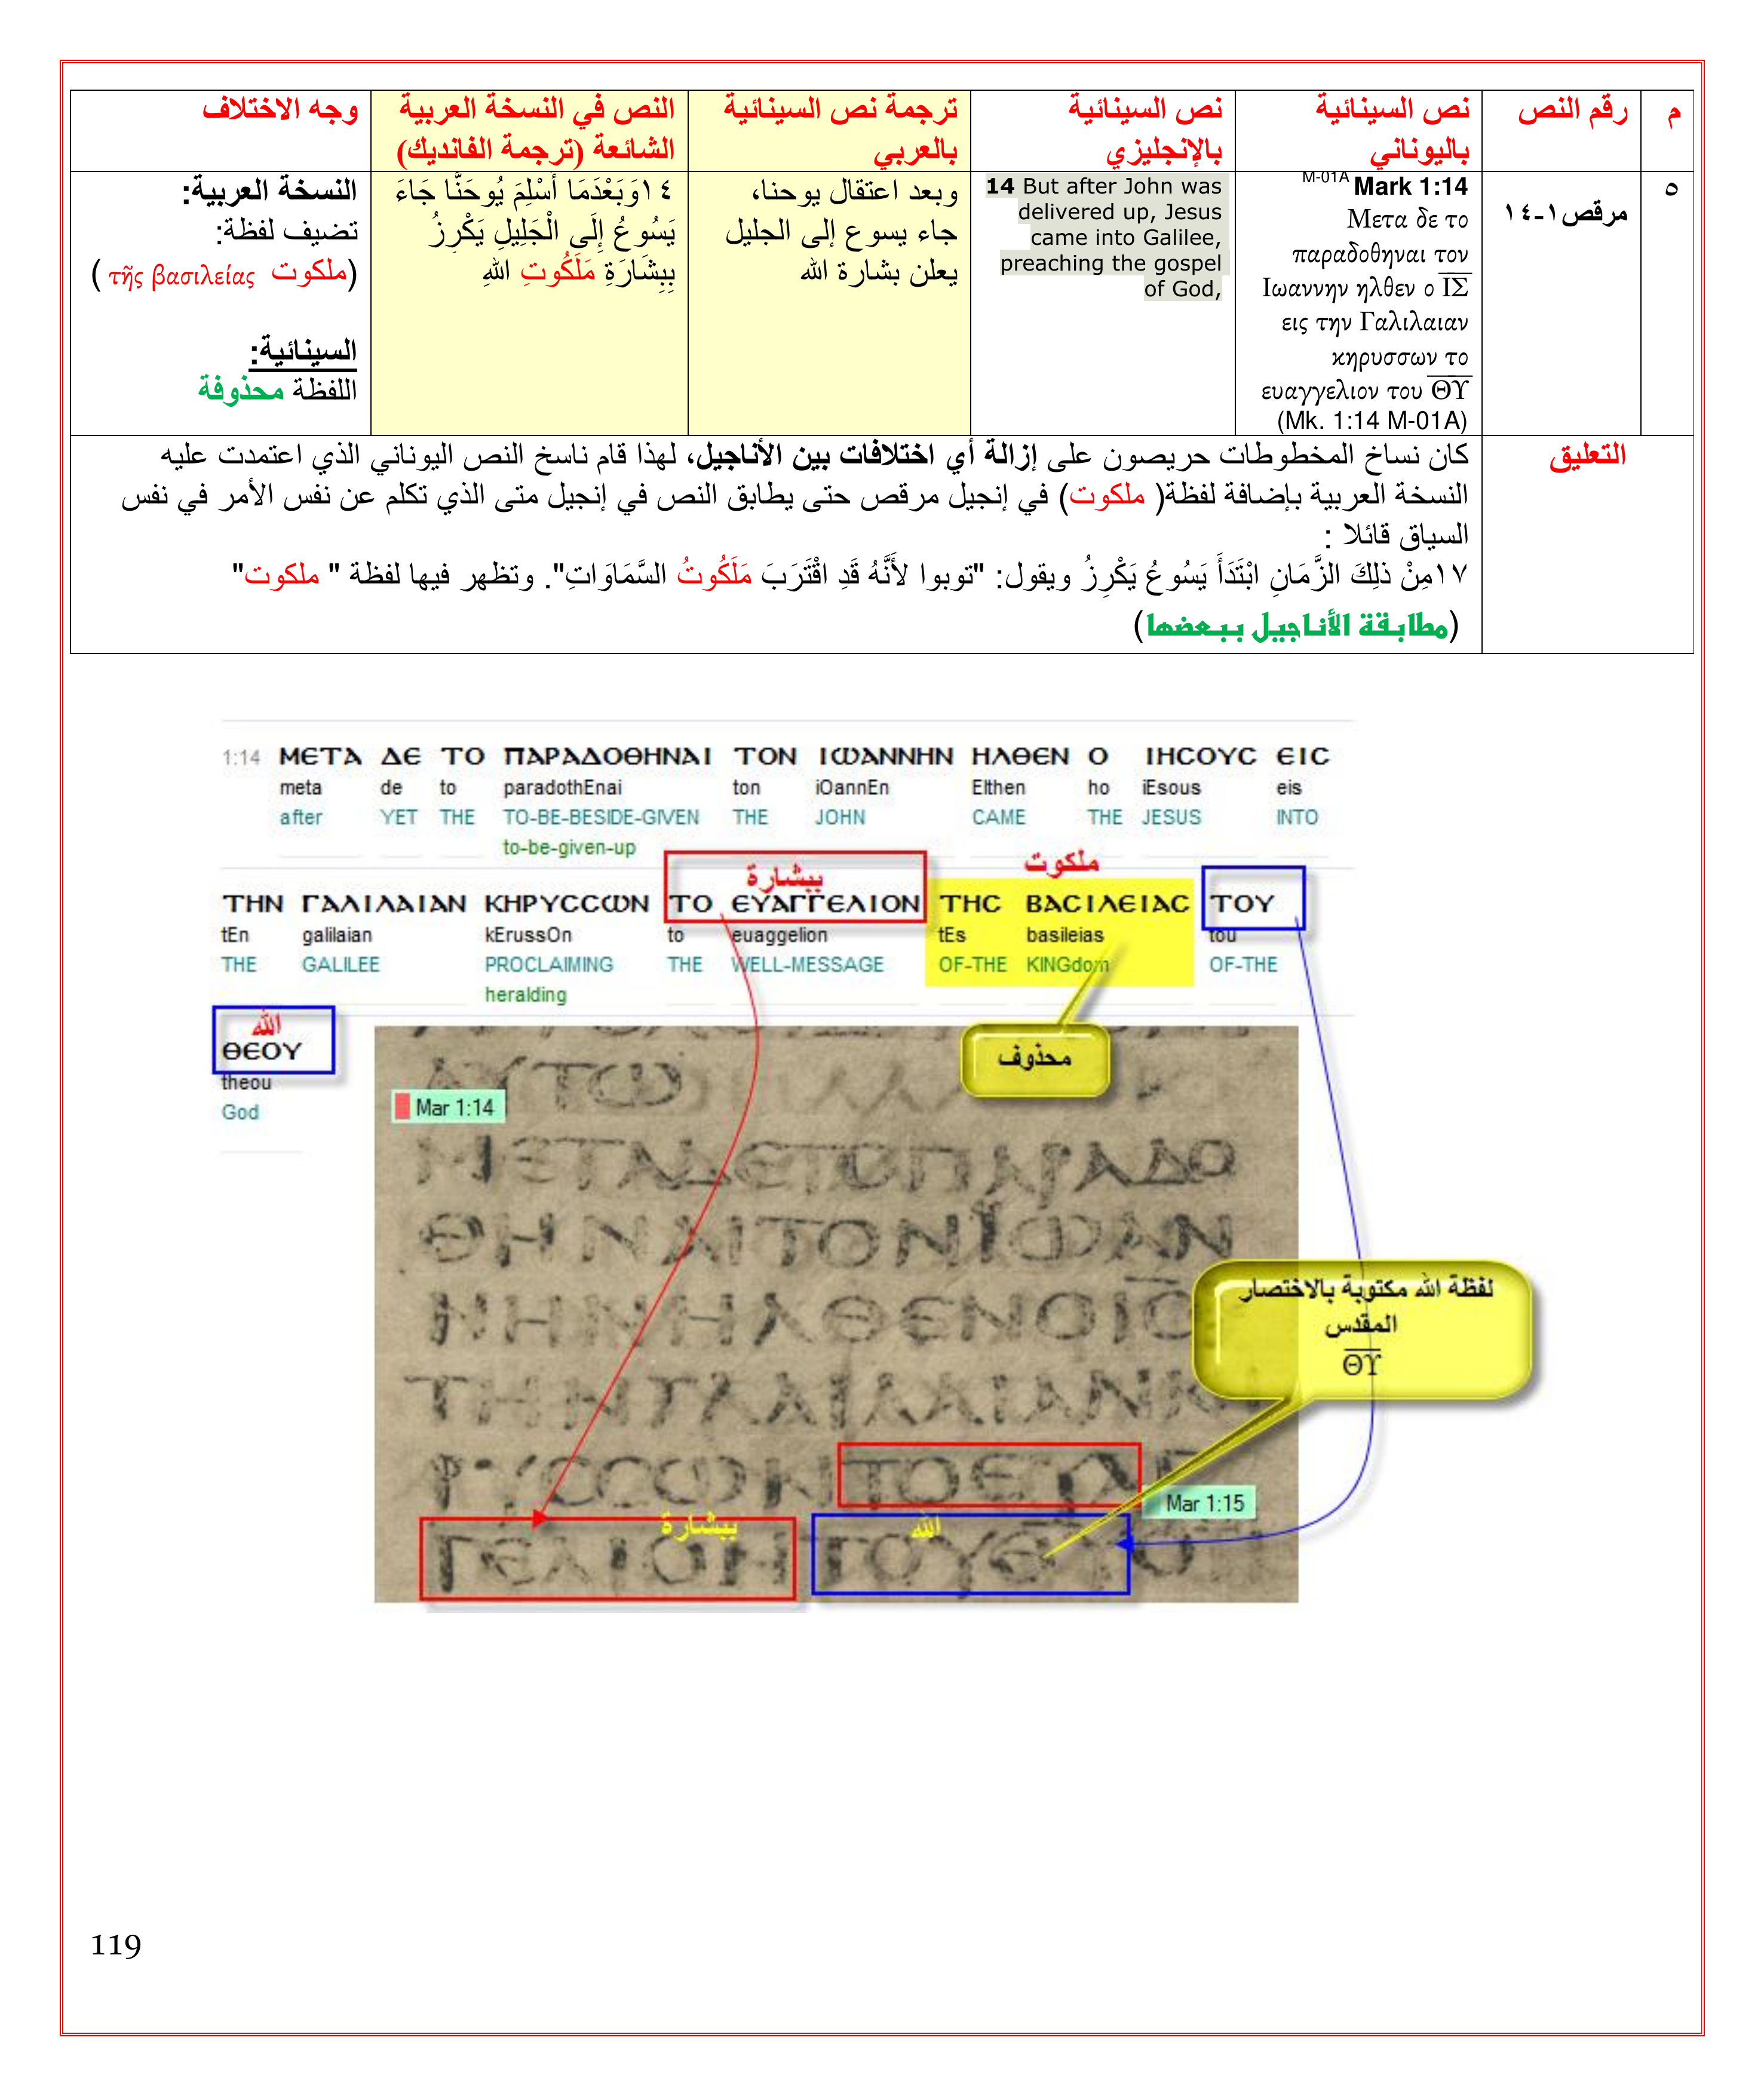 م
رقم النص
نص السينائية
باليوناني
نص السينائية
بالإنجليزي
ترجمة نص السينائية
بالعربي
النص في النسخة العربية
الشائعة (ترجمة الفانديك)
وجه الاختلاف
٥
مرقص١-١٤
M-01A Mark 1:14
Μετα δε το
παραδοθηναι τον
Ιωαννην ηλθεν ο Ι̅Σ̅
εις την Γαλιλαιαν
κηρυσσων το
ευαγγελιον του Θ̅Υ̅
(Mk. 1:14 M-01A)
14 But after John was
delivered up, Jesus
came into Galilee,
preaching the gospel
of God,
وبعد اعتقال يوحنا،
جاء يسوع إلى الجليل
يعلن بشارة الله
١٤وَبَعْدَمَا أُسْلِمَ يُوحَنَّا جَاءَ
يَسُوعُ إِلَى الْجَلِيلِ يَكْرِزُ
بِبِشَارَةِ مَلَكُوتِ اللهِ
النسخة العربية:
تضيف لفظة:
(ملكوت τῆς βασιλείας )
السينائية:
اللفظة محذوفة
التعليق
كان نساخ المخطوطات حريصون على إزالة أي اختلافات بين الأناجيل، لهذا قام ناسخ النص اليوناني الذي اعتمدت عليه
النسخة العربية بإضافة لفظة( ملكوت) في إنجيل مرقص حتى يطابق النص في إنجيل متى الذي تكلم عن نفس الأمر في نفس
السياق قائلا :
١٧مِنْ ذلِكَ الزَّمَانِ ابْتَدَأَ يَسُوعُ يَكْرِزُ ويقول: "توبوا لأَنَّهُ قَدِ اقْتَرَبَ مَلَكُوتُ السَّمَاوَاتِ". وتظهر فيها لفظة " ملكوت"
(مطابقة الأناجيل ببعضها)
1:14 ΜΕΤΑ ΔΕ ΤΟ ΠΑΡΑΔΟΘΗΝΑΙ ΤΟΝ ΙΩΑΝΝΗΝ ΗΛΘΕΝ Ο ΙΗϹΟΥϹ ΕΙϹ
meta de to paradothEnai ton iOannEn Elthen ho iEsous eis
after YET THE TO-BE-BESIDE-GIVEN THE JOHN CAME THE JESUS INTO
to-be-given-up
ببشارة
ملكوت
ΤΗΝ ΓΑΛΙΛΑΙΑΝ ΚΗΡΥϹϹΩΝ ΤΟ ΕΥΑΓΓΕΛΙΟΝ ΤΗϹ ΒΑϹΙΛΕΙΑϹ ΤΟΥ
tEn galilaian kErussOn to euaggelion tEs basileias tou
THE GALILEE PROCLAIMING THE WELL-MESSAGE OF-THE KINGdom OF-THE
heralding
الله
ΘΕΟΥ
theou
God
محذوف
ΑΥΤΩ
Mar 1:14
ΜΕΤΑΔΕΤΟΠΑΡΑΔΟ
ΘΗΝΑΙΤΟΝΙΩΑΝ
ΝΗΝΗΛΘΕΝΟΙϹ
ΤΗΝΓΑΛΙΛΑΙΑΝΚ
ΡΥϹϹΩΝΤΟΕΥΑΓ
Mar 1:15
لفظة الله مكتوبة بالاختصار
المقدس
Θ̅Υ̅
ببشارة
الله
ΓΕΛΙΟΝΤΟΥΘΥΟ
119